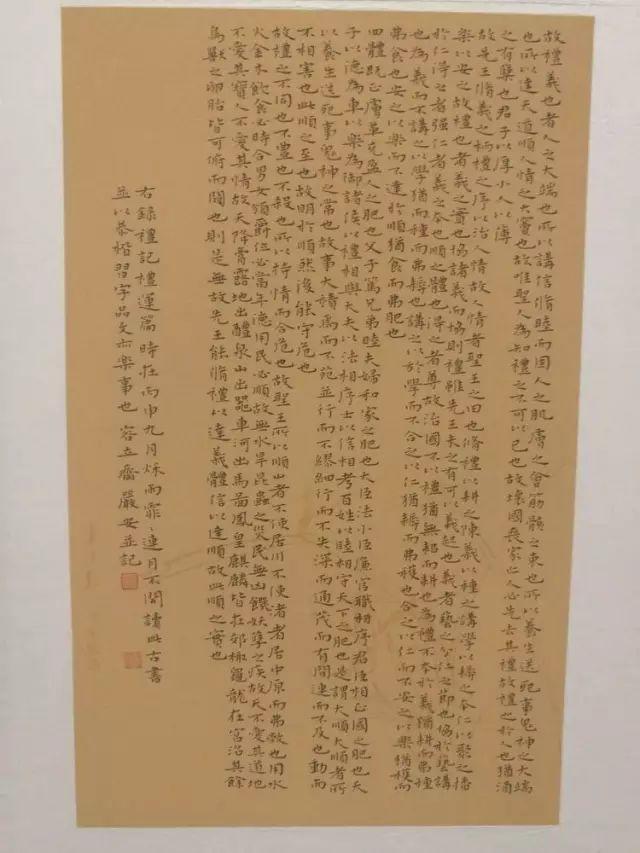 故禮義也者人之大端也所以講信脩睦而固人之肌膚之會筋骸之束也所以養生送死事鬼神之大端
也所以達天道順人情之大竇也故唯聖人為知禮之不可以已也故壞國喪家亡人必先去其禮故禮之於人也猶酒
之有糱也君子以厚小人以薄
故先王脩義之柄禮之序以治人情故人情者聖王之田也脩禮以耕之陳義以種之講學以耨之本仁以聚之播
樂以安之故禮也者義之實也協諸義而協則禮雖先王未之有可以義起也義者藝之分仁之節也協於藝講
於仁得之者強仁者義之本也順之體也得之者尊故治國不以禮猶無耜而耕也為禮不本於義猶耕而弗種
也為義而不講之以學猶而種而弗耨也講之以於學而不合之以仁猶耨而弗穫也合之以仁而不安之以樂猶穫而
弗食也安之以樂而不達於順猶食而弗肥也
四體既正膚革充盈人之肥也父子篤兄弟睦夫婦和家之肥也大臣法小臣廉官職相序君臣相正國之肥也天
子以德為車以樂為御諸侯以禮相與大夫以法相序士以信相考百姓以睦相守天下之肥也是謂大順大順者所
以養生送死事鬼神之常也故事大積焉而不苑並行而不繆細行而不失深而通茂而有間連而不及也動而
不相害也此順之至也故明於順然後能守危也
故禮之不同也不豐也不殺也所以持情而合危也故聖王所以順山者不使居川不使渚者居中原而弗敝也用水
火金木飲食必時合男女頒爵位必當年德用民必順故無水旱昆蟲之災民無凶饑妖孽之疾故天不愛其道地
不愛其寶人不愛其情故天降膏露地出醴泉山出器車河出馬圖鳳皇麒麟皆在郊棷龜龍在宮沼其餘
鳥獸之卵胎皆可俯而闚也則是無故先王能脩禮以達義體信以達順故此順之實也
右錄禮記禮運篇時在丙申九月秋雨霏霏連月不開讀此古書
並以恭楷習字品文亦樂事也 容立齋嚴安並記